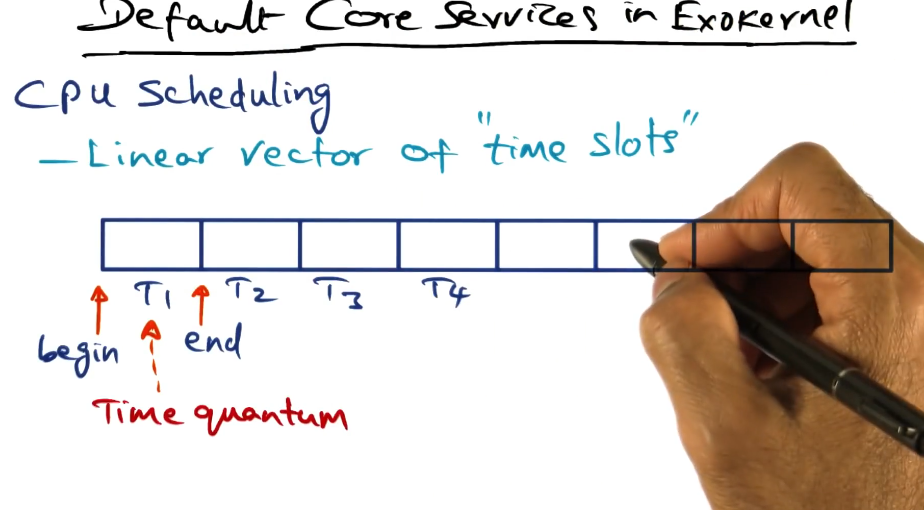 Default Core Services in Exokernel
CPU Scheduling
— Linear vector of "time slots"
T1 T2 T3 T4
begin end
Time quantum